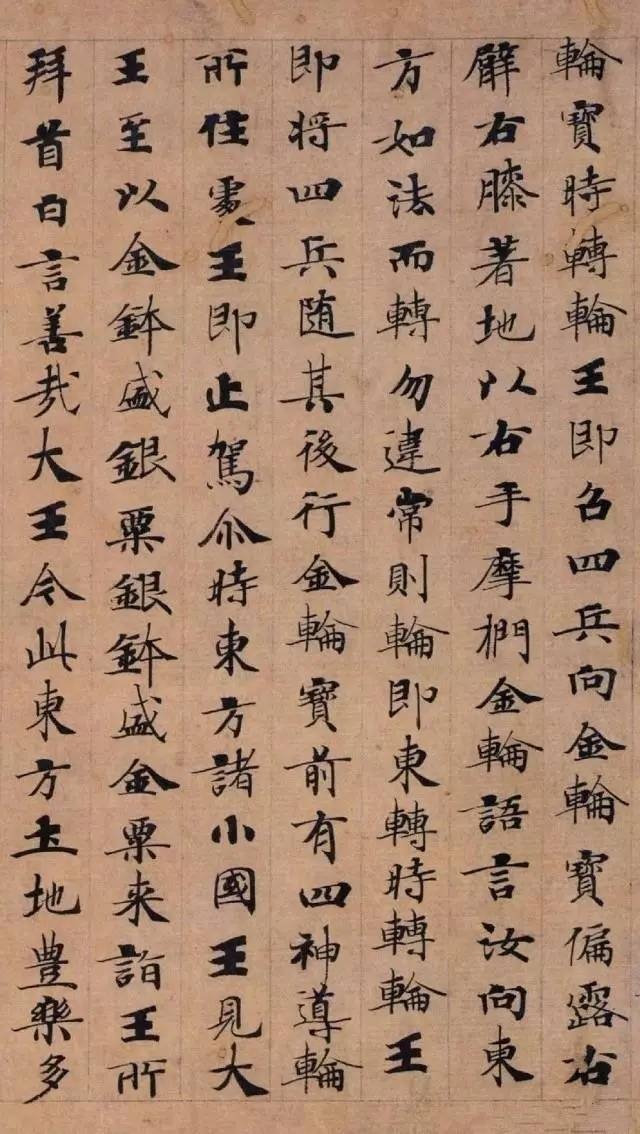 輪寶時轉輪王即召四兵向金輪寶偏露右
臂右膝著地以右手摩捫金輪語言汝向東
方如法而轉勿違常則輪即東轉時轉輪王
即将四兵随其後行金輪寶前有四神導輪
所住處王即止駕尒時東方諸小國王見大
王至以金鉢盛銀粟銀鉢盛金粟来詣王所
拜首白言善哉大王今此東方土地豊樂多